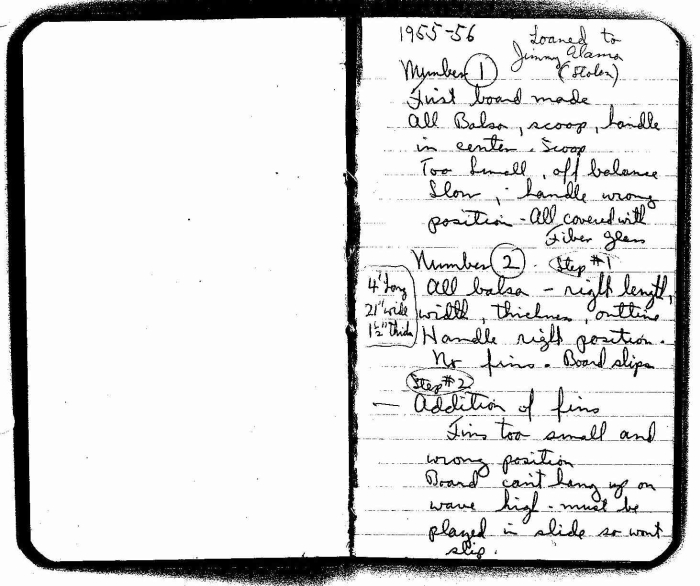 1955-56
Loaned to
Jimmy Alama
(Stolen)
Number 1
First board made
All Balsa, scoop, handle
in center. Scoop
Too small, off balance
Slow, handle wrong
position - All covered with
Fiber glass
Number 2. Step #1
4' long
21" wide
1½" thick
All balsa - right length,
width, thickness, outline
Handle right position.
No fins. Board slips
Step #2
— Addition of fins
Fins too small and
wrong position
Board can't hang up on
wave high - must be
placed in slide so wont
slip.